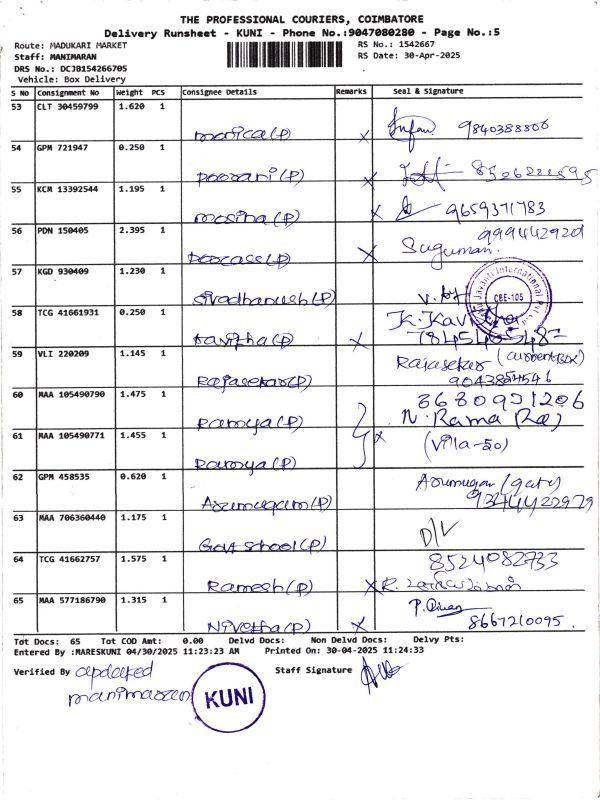 THE PROFESSIONAL COURIERS, COIMBATORE
Delivery Runsheet - KUNI - Phone No.:9047080280 - Page No.:5
Route: MADUKARI MARKET RS No.: 1542667
Staff: MANIMARAN RS Date: 30-Apr-2025
DRS No.: DCJB154266705
Vehicle: Box Delivery
S No Consignment No Weight PCS Consignee Details Remarks Seal & Signature
53 CLT 30459799 1.620 1
monica(P) x 9840388806
54 GPM 721947 0.250 1
poorani(P) x
55 KCM 13392544 1.195 1
mosina(P) x 9659371783
56 PDN 150405 2.395 1 999442920
x Suguman.
57 KGD 930409 1.230 1
sivadhanush(P) CBE-105
58 TCG 41661931 0.250 1 K. Kavitha
kavitha(P) x
59 VLI 220209 1.145 1 Rajasekar (current Box)
Rajasekar(P) 9043854546
60 MAA 105490790 1.475 1 8680951206
Ramya(P) N. Rama
61 MAA 105490771 1.455 1 x (Villa-50)
Ramya(P)
62 GPM 458535 0.620 1 Arumugam (gate)
Arumugam(P) 9344422979
63 MAA 706360440 1.175 1 D/L
Govt school(P)
64 TCG 41662757 1.575 1 8524082733
Ramesh(P) x
65 MAA 577186790 1.315 1
Nivetha(P) x 8667210095.
Tot Docs: 65 Tot COD Amt: 0.00 Delvd Docs: Non Delvd Docs: Delvy Pts:
Entered By :MARESKUNI 04/30/2025 11:23:23 AM Printed On: 30-04-2025 11:24:33
Verified By updated Staff Signature
manimaran KUNI